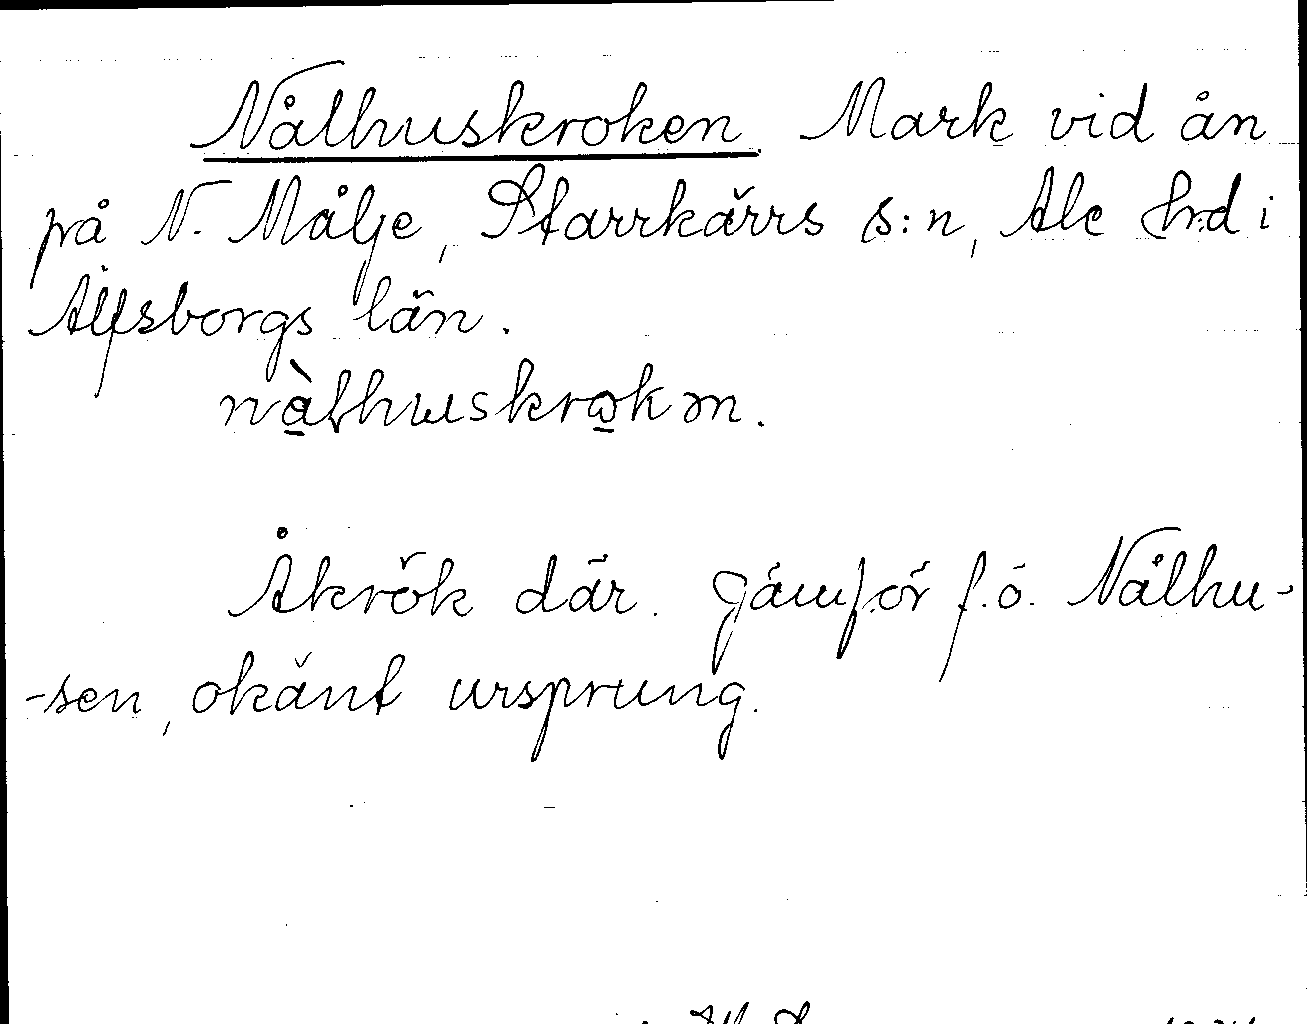 Nålhuskroken. Mark vid ån
på N. Målje, Starrkärrs s:n, Ale hrd i
Älfsborgs län.
nàlhuskrokən.
Åkrök där. Jämför f.ö. Nålhu-
-sen, okänt ursprung.